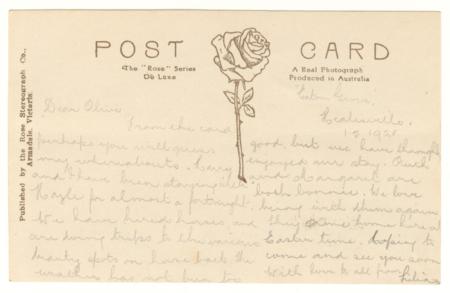 POST CARD
The "Rose" Series
De Luxe
A Real Photograph
Produced in Australia
Published by the Rose Stereograph Co.,
Armadale, Victoria.
Healesville
Dear Olive
From the card
perhaps you will guess
may whereabouts. Harry
and I have been staying with
Hazle for almost a fortnight
We have hired horses and
are doing trips to the various
beauty spots on horse back the
weather has not been too
good, but we have thoroughly
enjoyed our stay. Ruth
and Margaret are
both bonnie. We love
being with them again
they come home here at
Easter time. Hoping to
come and see you soon
With love to all from